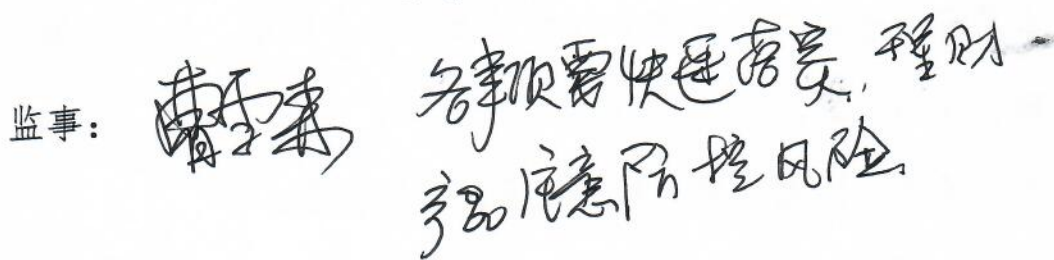 监事：曹 各事项需快速落实，理财
产品注意防控风险